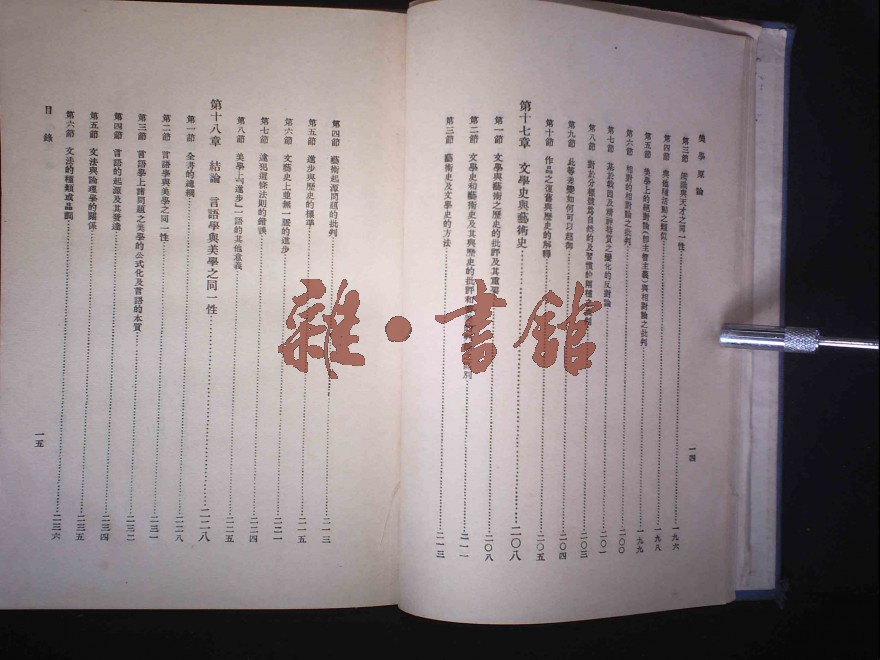 美學原論
第三節 鑑識與天才之同一性……一九六
第四節 與他種活動之類似……一九八
第五節 美學上的絕對論(即主智主義)與相對論之批判……一九九
第六節 相對的相對論之批判……二〇〇
第七節 基於戟因及精神性質之變化的反對論……二〇一
第八節 對於分標號爲自然的及習慣的兩種
第九節 此等差變如何可以超御……二〇四
第十節 作品之復舊與歷史的解釋……二〇五
第十七章 文學史與藝術史……二〇八
第一節 文學與藝術之歷史的批評及其重要……二〇八
第二節 文學史和藝術史及其與歷史的批評和……別……二一一
第三節 藝術史及文學史的方法……二一三
一四
第四節 藝術起源問題的批判……二一三
第五節 進步與歷史的標準……二一五
第六節 文藝史上並無一歷的進步……二二一
第七節 違犯這條法則的錯誤……二二四
第八節 美學上「進步」一語的其他意義……二二五
第十八章 結論 言語學與美學之同一性……二二八
第一節 全書的連綱……二二八
第二節 言語學與美學之同一性……二三一
第三節 言語學上諸問題之美學的公式化及言語的本質……二三二
第四節 言語的起源及其發達……二三四
第五節 文法與論理學的關係……二三五
第六節 文法的種類或品詞……二三六
目錄
一五
雜·書館